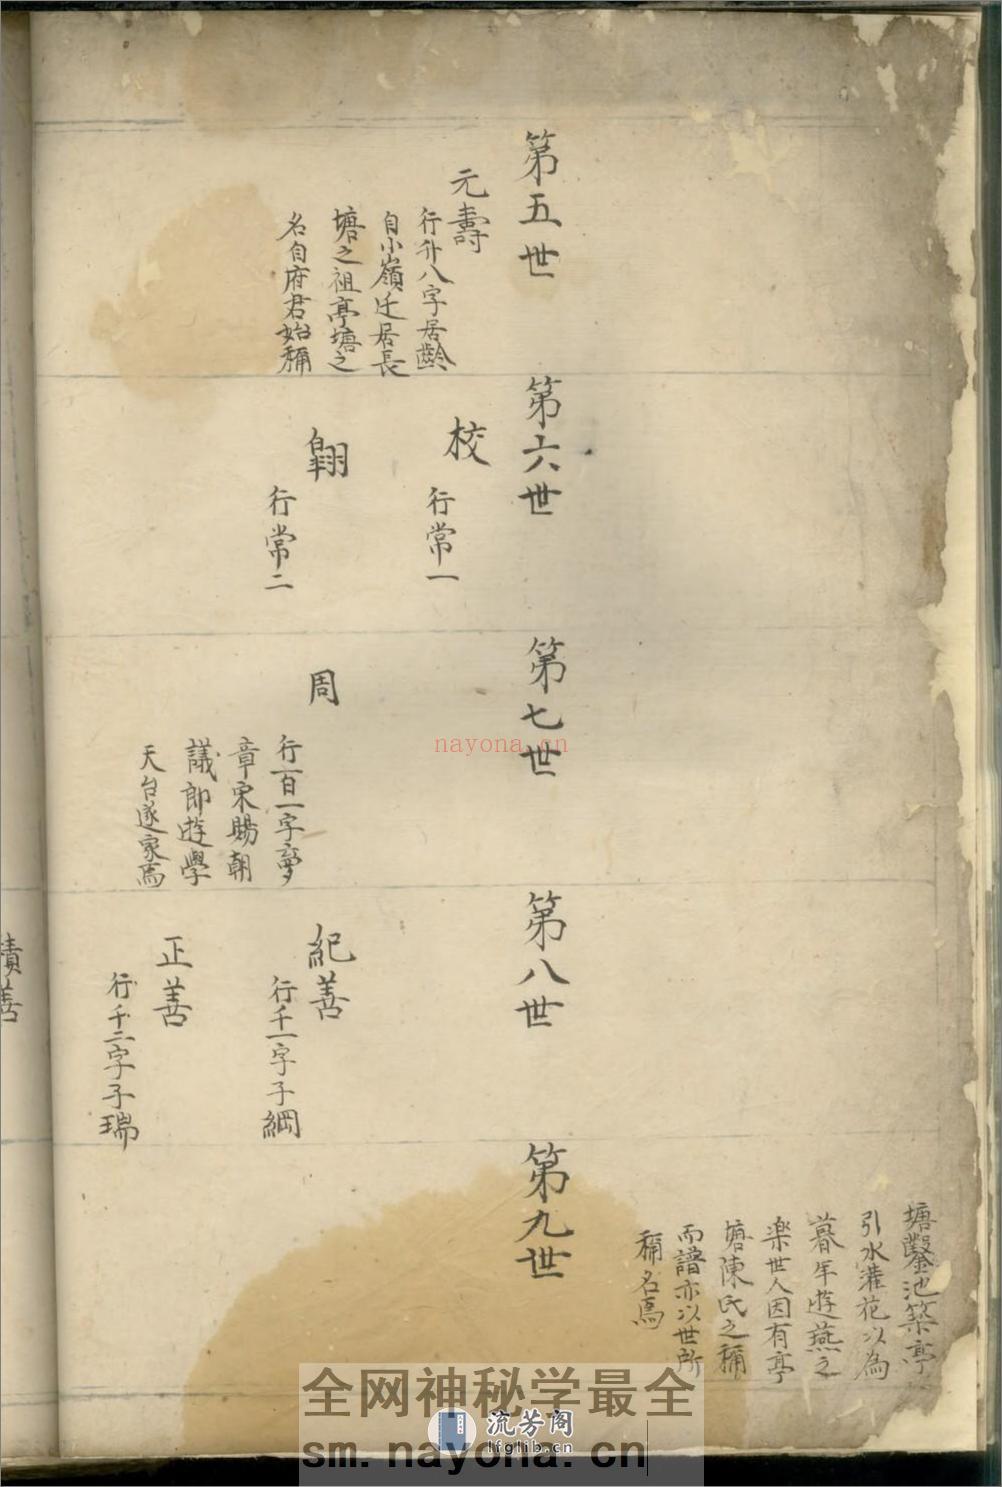 塘鑿池築亭
引水灌花以為
暮年遊燕之
楽世人因有亭
塘陳氏之稱
而譜亦以世所
稱名焉
第五世
元壽
行升八字居齡
自小嶺迁居長
塘之祖亭塘之
名自府君始稱
第六世
校
行常一
翶
行常二
第七世
周
行百一字夢
章宋賜朝
議郎遊學
天台遂家焉
第八世
紀善
行千一字子綱
正善
行千二字子瑞
積善
第九世
nayona.cn
全网神秘学最全
流芳阁
lfglib.cn
sm.nayona.cn